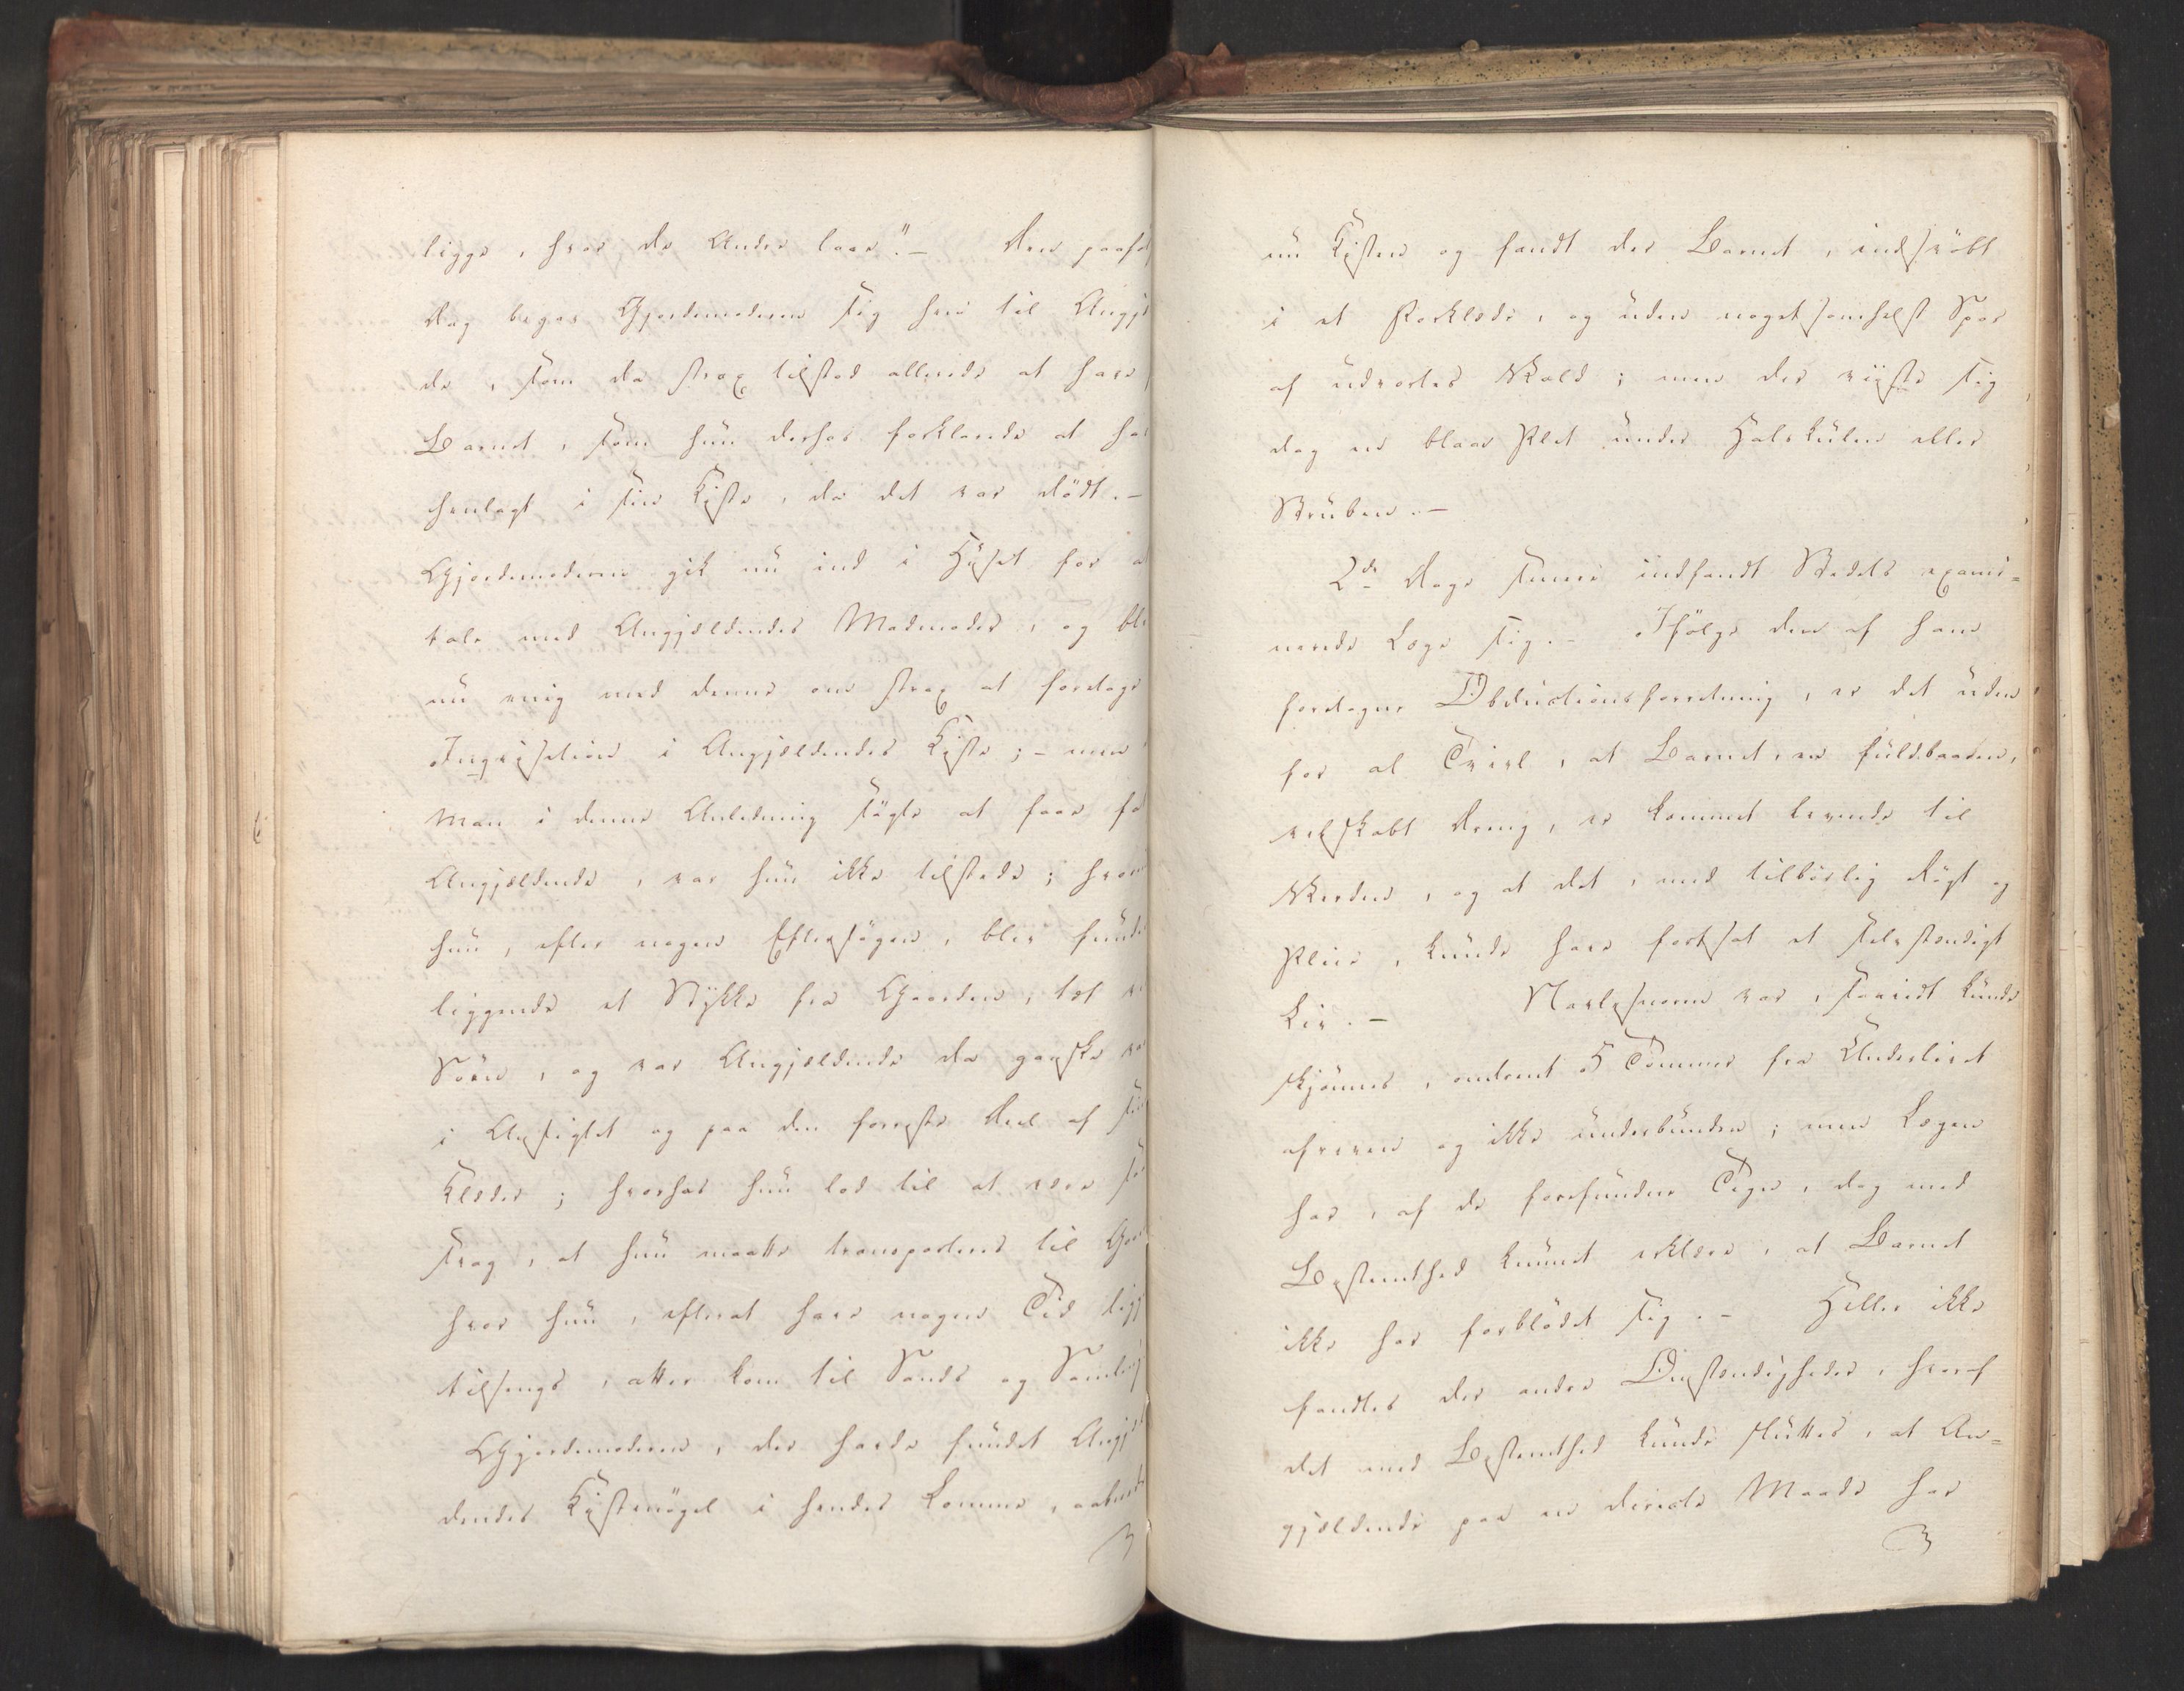 ligge, hvor de Andre laae." – Den paaføl
Dag begav Gjordemoderen sig hen til Angjæ
de, som da strax tilstod allerede at have
Barnet, som hun derhos forklarede at hav
henlagt i sin Kiste, da det var dödt. –
Gjordemoderen gik nu ind i Huset for a
tale med Angjældendes Madmoder, og ble
nu enig med denne om strax at foretage
Inqvisition i Angjældendes Kiste; – men
man i denne Anledning søgte at faae fa
Angjældende, var hun ikke tilstede; hvor
hun, efter nogen Eftersøgen, blev funde
liggende et Stykke fra Gaarden, tæt v
Søen, og var Angjældende da ganske va
i Ansigtet og paa den forreste Deel af sin
Klæder; hvorhos hun lod til at være så
svag, at hun maatte transporteres til Gaa
hvor hun, efterat have nogen Tid ligg
tilsengs, atter kom til Sands og Samling
Gjordemoderen, der havde fundet Angjæl
dendes Kistenøgel i hendes Lomme, aabned
nu Kisten og fandt der Barnet, indsvøbt
i et Forklæde, og uden nogetsomhelst Spor
af udvortes Vold; men der viiste sig
dog en blaae Plet under Halskulen eller
Struben. –
2de Dage senere indfandt Stedets exami=
nerede Læge sig. – Ifølge den af ham
foretagne Obductionsforretning, er det uden
for al Tvivl, at Barnet, en fuldbaaren,
velskabt Dreng, er kommet levende til
Verden, og at det, med tilbørlig Røgt og
Pleie, kunde have fortsat et selvstændigt
Liv. – Navlesnoren var, saavidt kunde
skjønnes, omtrent 5 Tommer fra Underlivet
afreven og ikke underbunden; men Lægen
har, af de forefundne Tegn, dog med
Bestemthed kunnet erklære, at Barnet
ikke har forblødet sig. – Heller ikke
fandtes der andre Omstændigheder, hvoraf
det med Bestemthed kunde sluttes, at An=
gjældende paa en directe Maade har